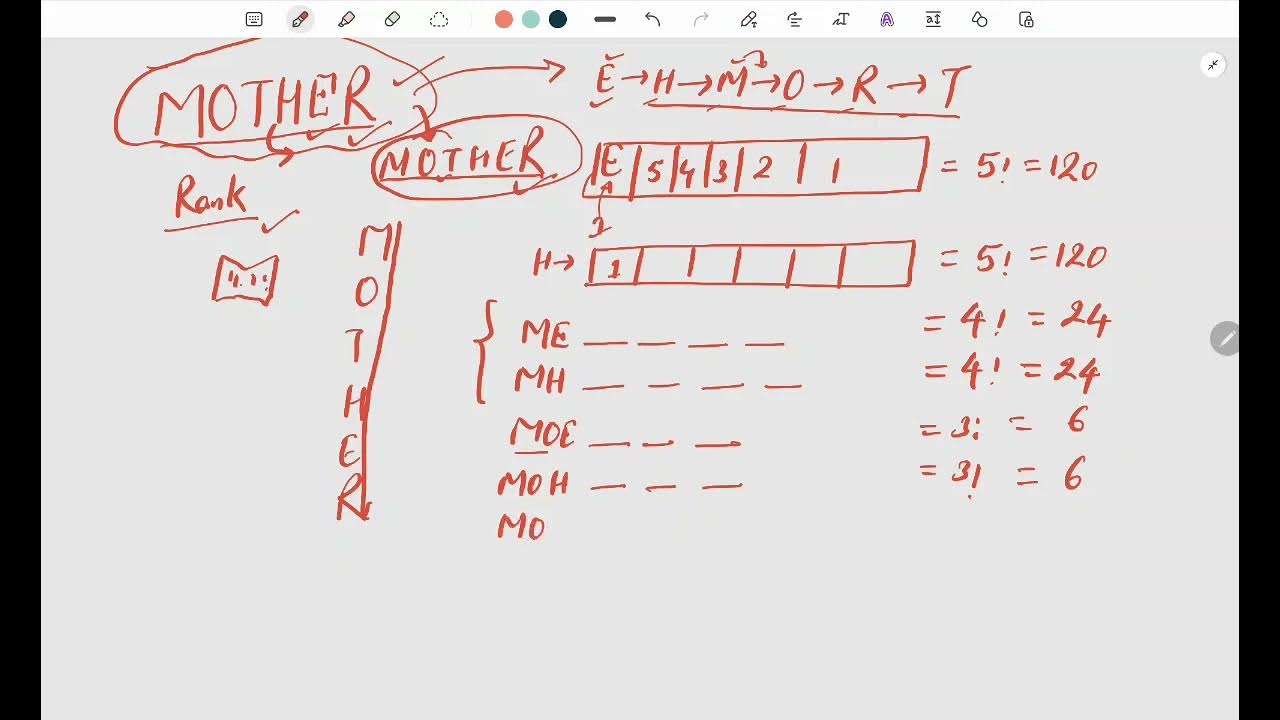 MOTHER
E → H → M → O → R → T
MOTHER
E 5 4 3 2 1 = 5! = 120
1
Rank
H → 1 = 5! = 120
M
O
T
H
E
R
ME __ __ __ __ = 4! = 24
MH __ __ __ __ = 4! = 24
MOE __ __ __ = 3! = 6
MOH __ __ __ = 3! = 6
MO